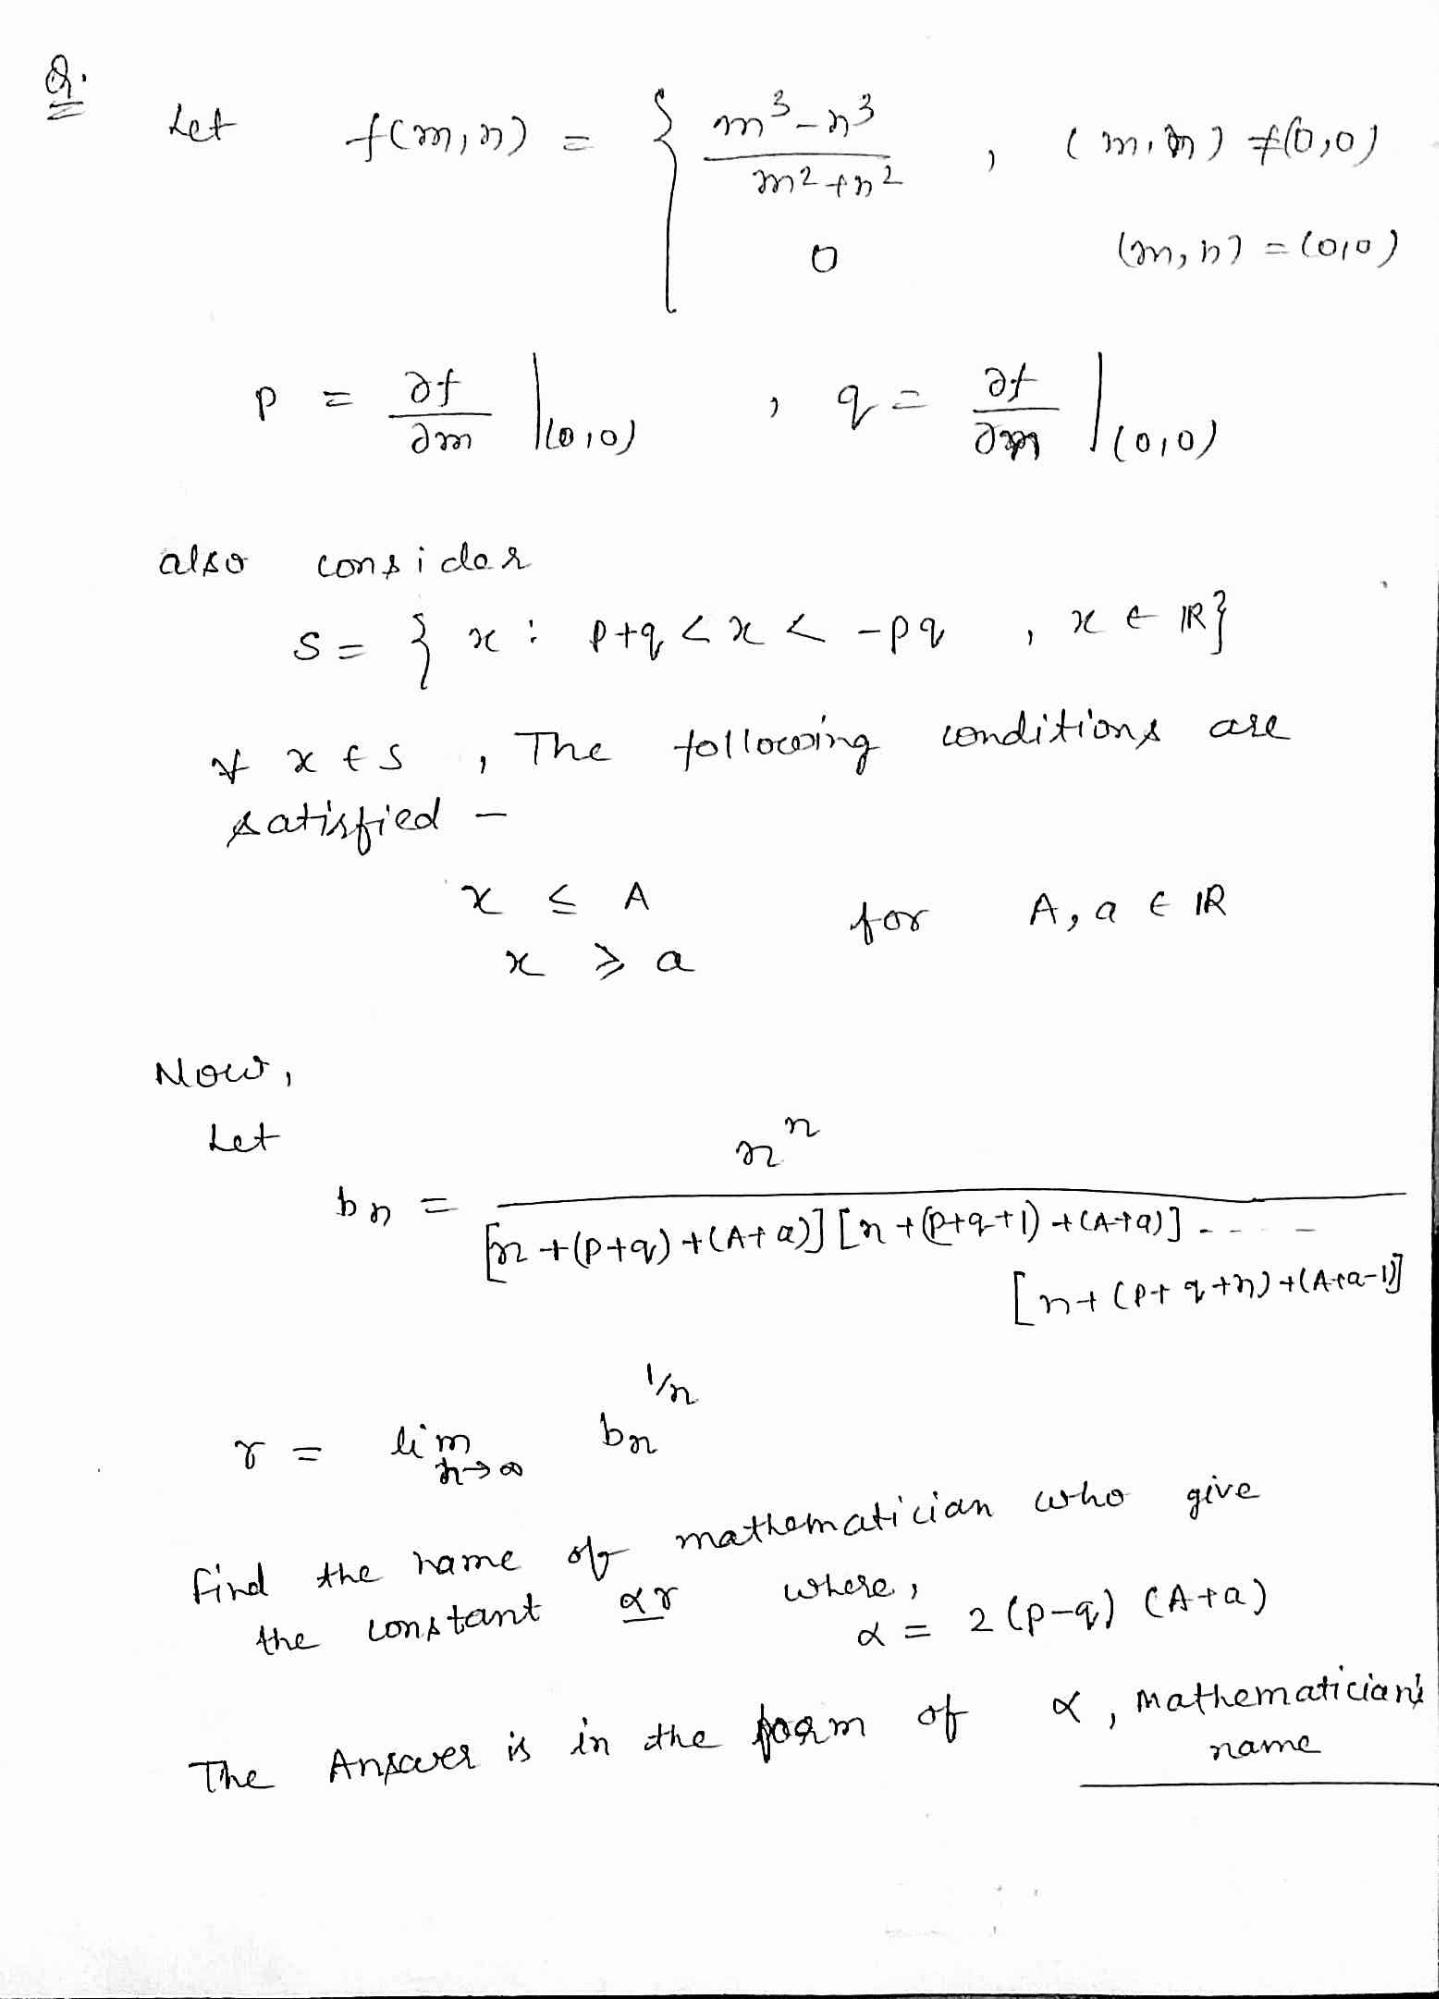 Q.
Let f(m,n) = { m³-n³ / m²+n² , (m,n) ≠ (0,0)
0 (m,n) = (0,0)
p = ∂f/∂m |(0,0) , q = ∂f/∂n |(0,0)
also consider
S = { x : p+q < x < -pq , x ∈ IR}
∀ x ∈ S , The following conditions are
satisfied -
x ≤ A
for A, a ∈ IR
x ≥ a
Now,
Let
bn = n^n / [n+(p+q)+(A+a)] [n+(p+q+1)+(A+a)] - - - -
[n+(p+q+n)+(A+a-1)]
γ = lim n→∞ bn^1/n
find the name of mathematician who give
the constant αγ where,
α = 2(p-q) (A+a)
The Answer is in the form of α, Mathematician's
name